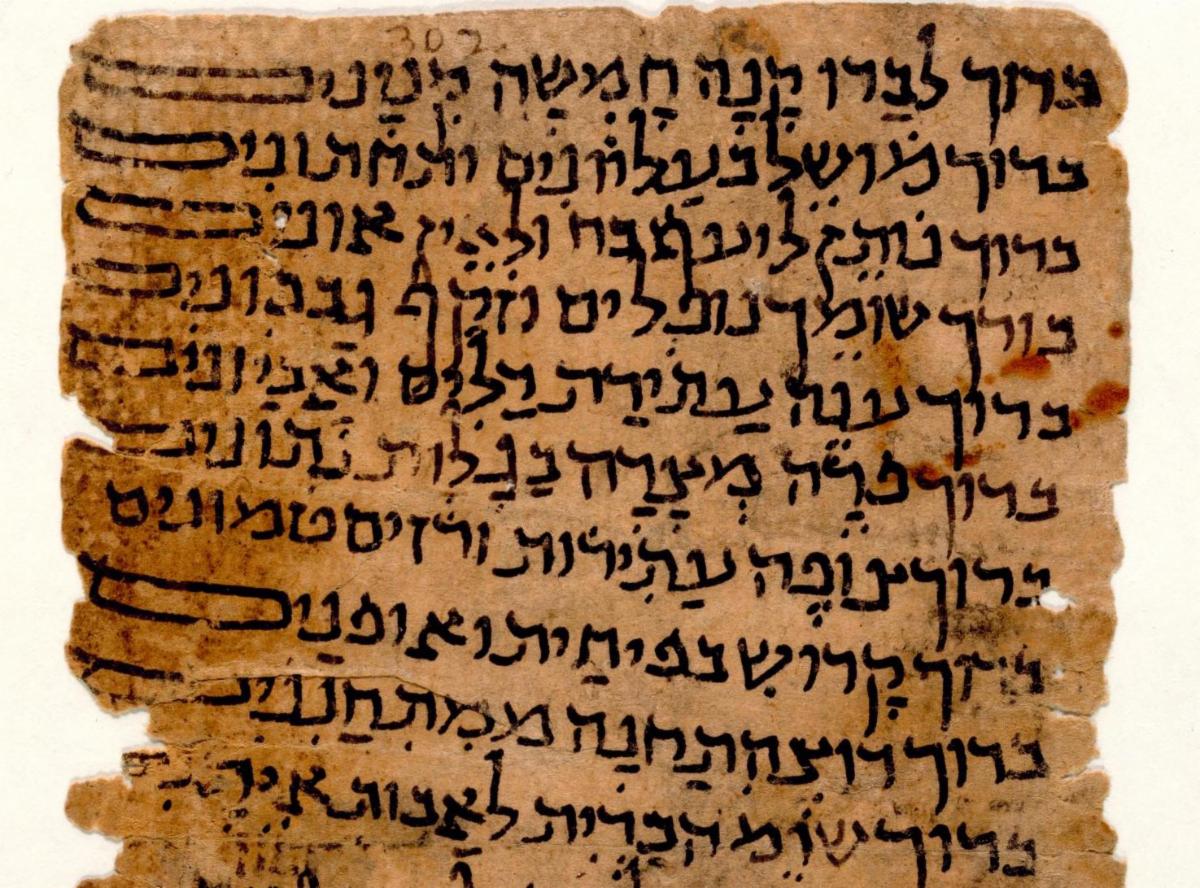 302
ברוך לבדו קנה חמשה קנינים
ברוך מושל בעליונים ותחתונים
ברוך נותן ליעף כח ולאין אונים
ברוך שומך נופלים וזקף גבנונים
ברוך ענה עתירת דלים ואביונים
ברוך פדה מצרה בגלות נתונים
ברוך צופה עתידות ורזים טמונים
ברוך קדוש בפי חית ואופנים
ברוך רוצה תחנה ממתחננים
ברוך שומר הברית לאבות